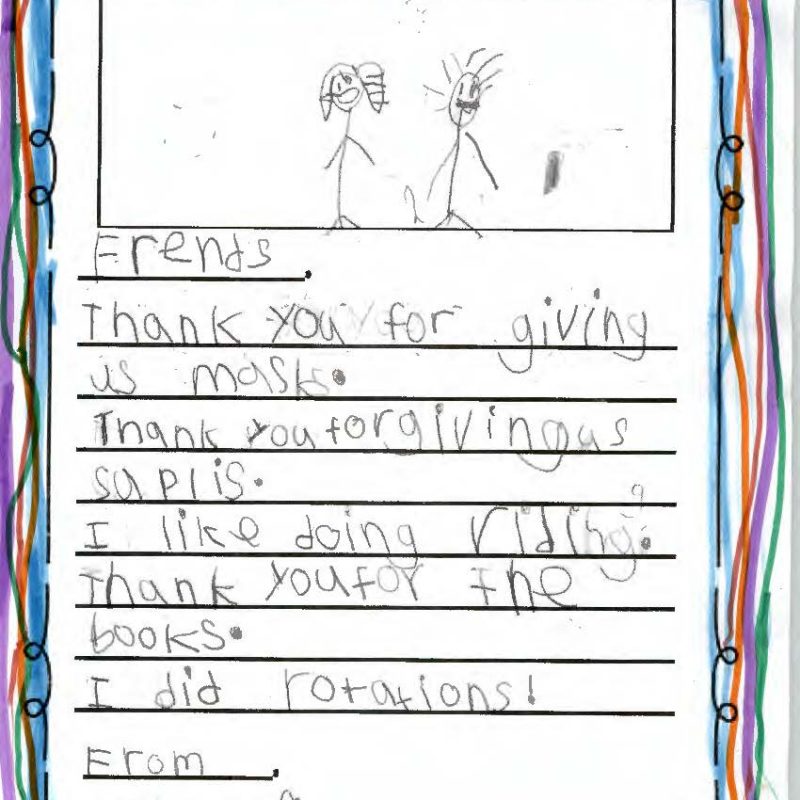 Frends,
Thank you for giving
us mask.
Thank you for giving us
saplis.
I like doing riding.
Thank you for the
books.
I did rotations!
From,